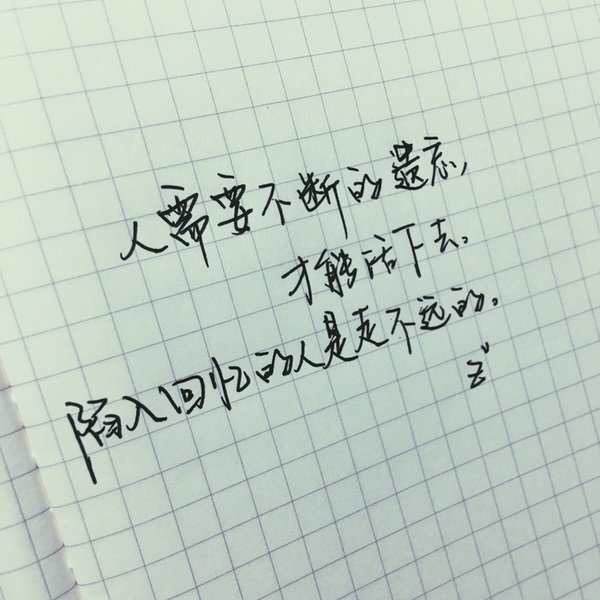 人需要不断的遗忘,
才能活下去。
陷入回忆的人是走不远的。